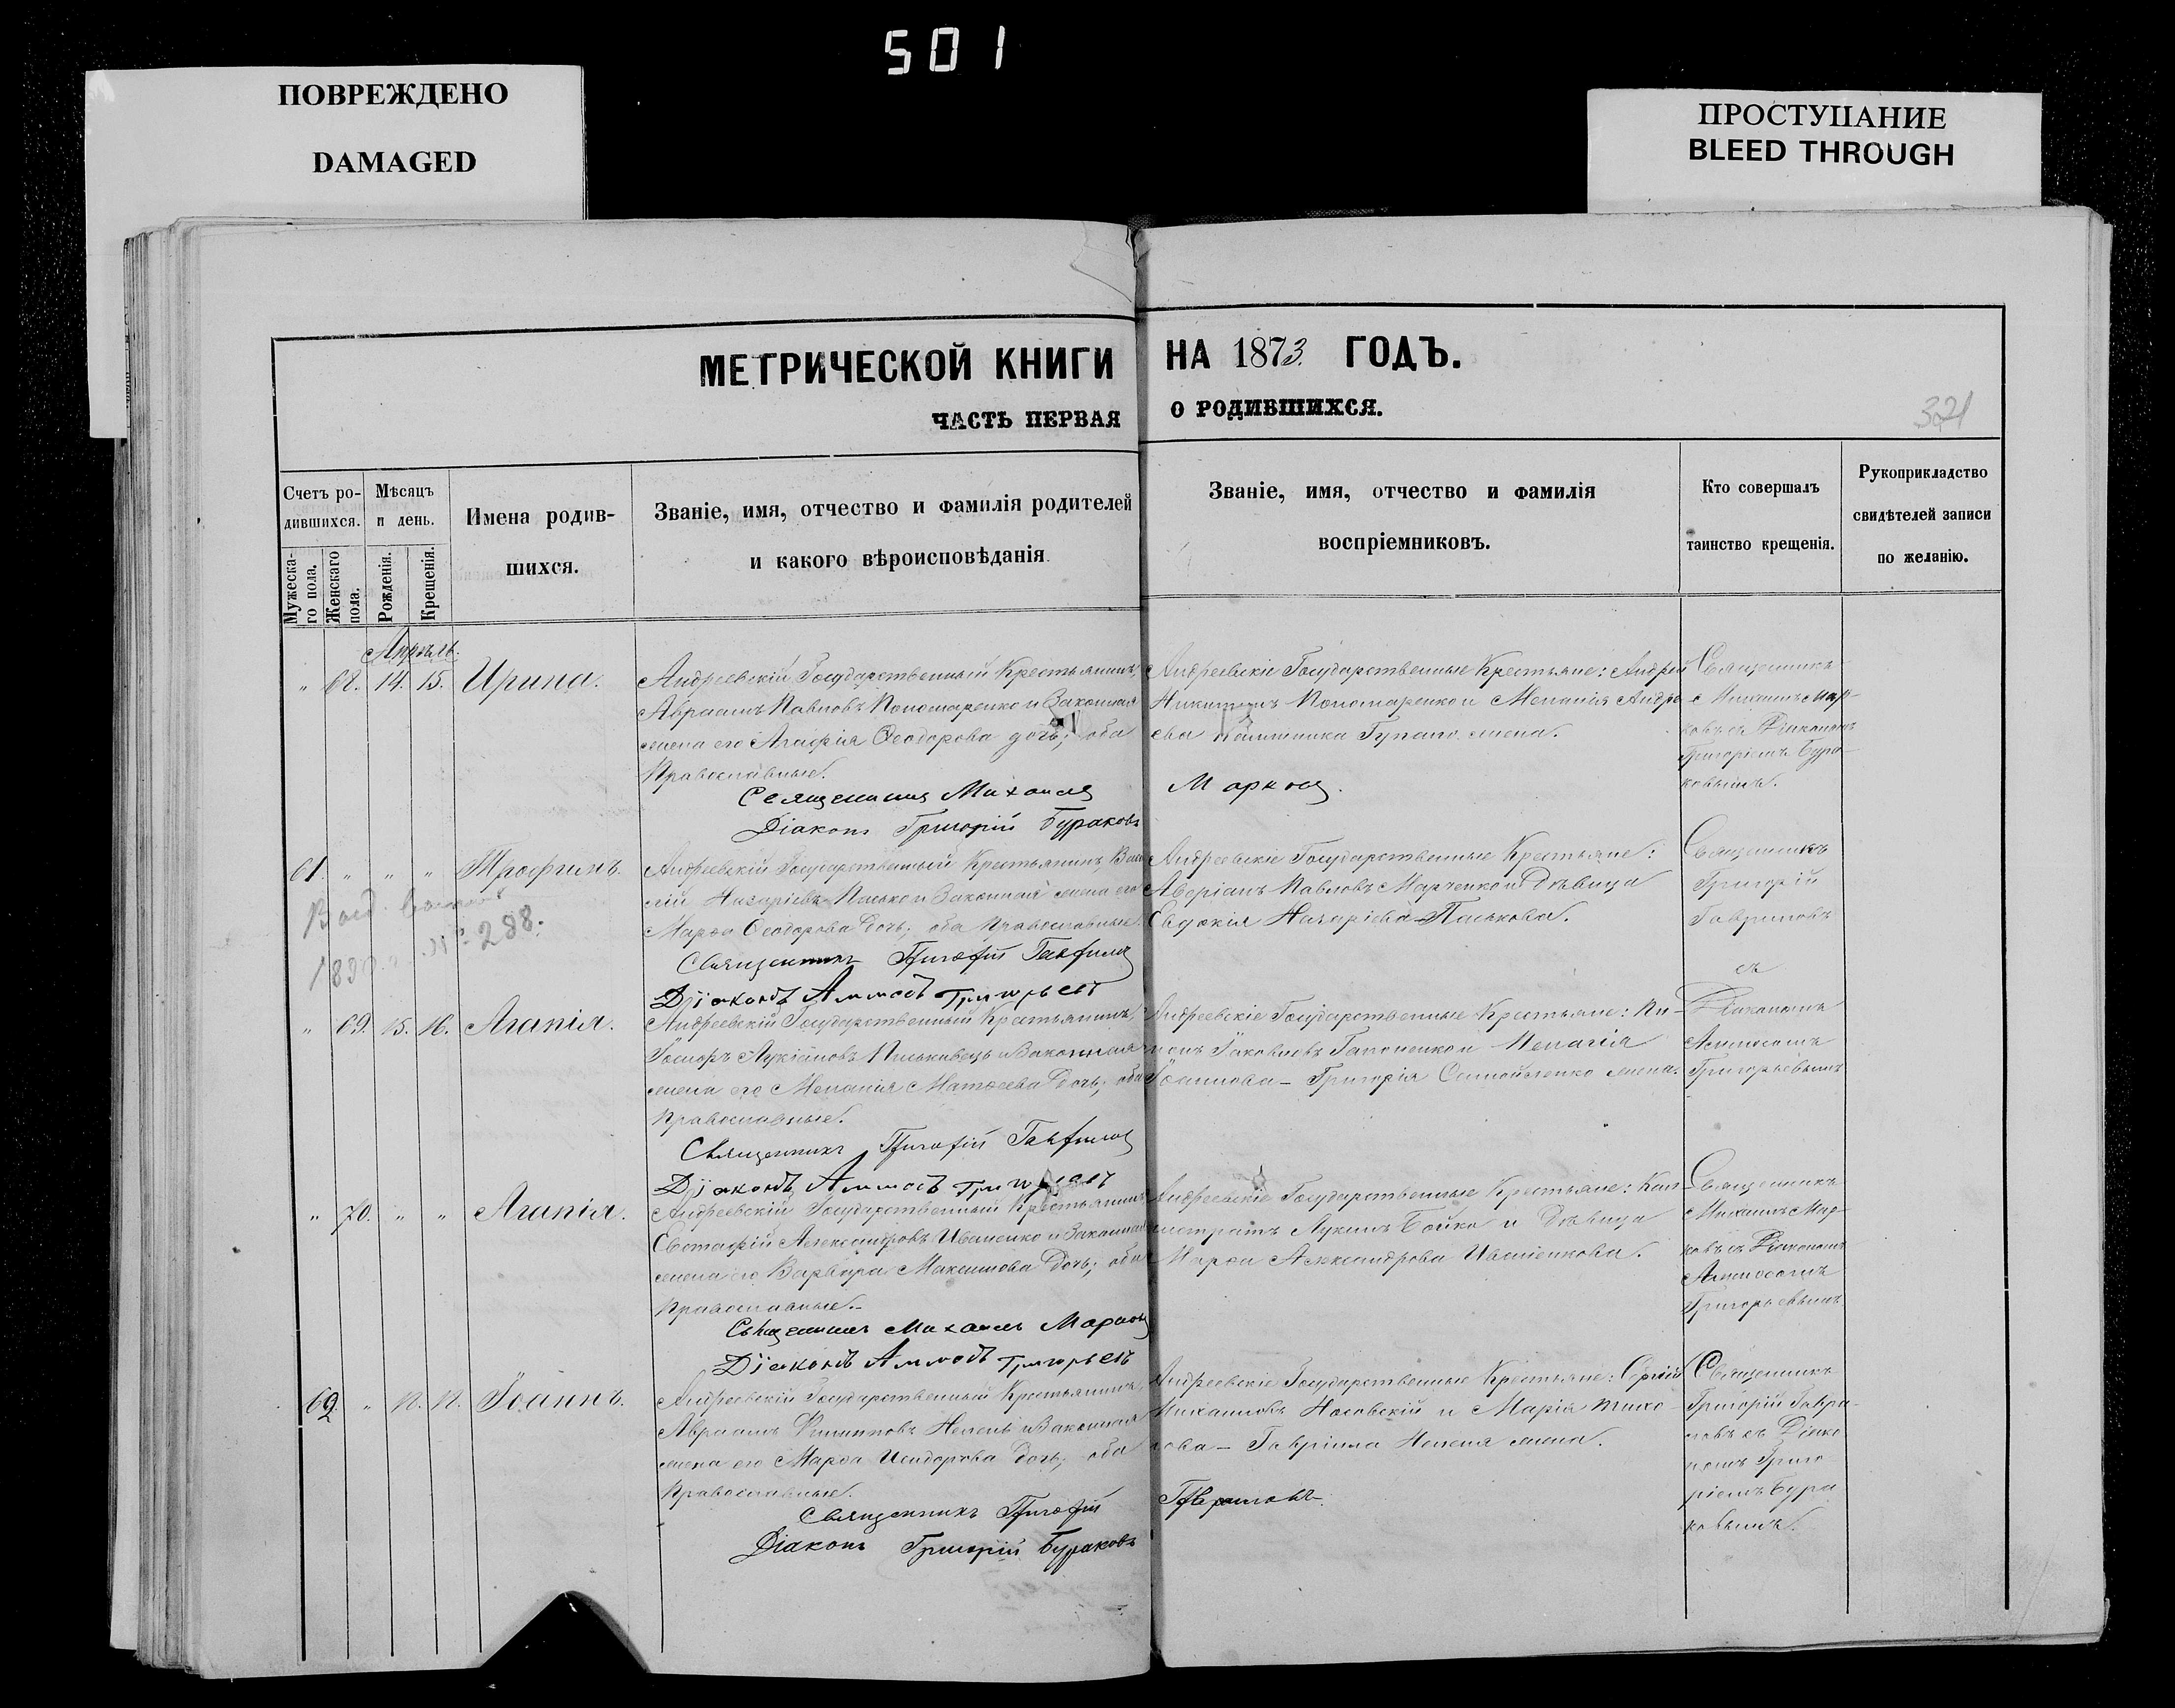 501
ПОВРЕЖДЕНО
DAMAGED
ПРОСТУПАНИЕ
BLEED THROUGH
МЕТРИЧЕСКОЙ КНИГИ НА 1873 ГОДЪ.
ЧАСТЬ ПЕРВАЯ О РОДИВШИХСЯ.
321
Счетъ ро-
дившихся.
Мужеска-
го пола.
Женскаго
пола.
Мѣсяцъ
и день.
Рожденія.
Крещенія.
Имена родив-
шихся.
Званіе, имя, отчество и фамилія родителей
и какого вѣроисповѣданія
Званіе, имя, отчество и фамилія
воспріемниковъ.
Кто совершалъ
таинство крещенія.
Рукоприкладство
свидѣтелей записи
по желанію.
Апрѣль.
" 68. 14. 15. Ирина.
Андреевскій Государственный Крестьянинъ
Авраамъ Павловъ Пономаренко и Законная
жена его Агафія Ѳеодорова дочь; оба
Православные.
Священникъ Михаилъ Марковъ.
Діаконъ Григорій Бураковъ
Андреевскіе Государственные Крестьяне: Андрей
Никитинъ Пономаренко и Меланія Андре-
ева жена.
Священникъ
Михаилъ Мар-
ковъ съ Діакономъ
Григоріемъ Бура-
ковымъ.
61. " " " Трофимъ.
№ 288.
Андреевскій Государственный Крестьянинъ, Васи
лій Назаріевъ Пасько и Законная жена его
Марѳа Ѳеодорова дочь; оба Православные.
Священникъ Григорій Гавриловъ
Діаконъ Аммосъ Григорьевъ
Андреевскіе Государственные Крестьяне:
Аверіанъ Павловъ Марченко и Дѣвица
Евдокія Назаріева Паськова.
Священникъ
Григорій
Гавриловъ
съ
Діакономъ
Аммосомъ
Григорьевымъ
" 69. 15. 16. Агапія.
Андреевскій Государственный Крестьянинъ,
жена его Меланія Матѳеева дочь; оба
Православные.
Священникъ Григорій Гавриловъ
Діаконъ Аммосъ Григорьевъ
Андреевскіе Государственные Крестьяне: Пи-
менъ Іаковлевъ Гапоненко и Пелагія
Іоаннова – Григорія Самойленко жена.
" 70. " " Агапія.
Андреевскій Государственный Крестьянинъ
Евстафій Александровъ Иваненко и Законная
жена его Варвара Максимова дочь; оба
Православные.
Священникъ Михаилъ Марковъ
Діаконъ Аммосъ Григорьевъ
Андреевскіе Государственные Крестьяне: Кал-
листратъ Лукинъ Бойко и Дѣвица
Марѳа Александрова Иваненкова.
Священникъ
Михаилъ Мар-
ковъ съ Діакономъ
Аммосомъ
Григорьевымъ
62. " Іоаннъ.
Андреевскій Государственный Крестьянинъ,
Авраамъ Филипповъ и Законная
жена его Марѳа Исидорова дочь; оба
Православные.
Священникъ Григорій Гавриловъ
Діаконъ Григорій Бураковъ
Андреевскіе Государственные Крестьяне: Сергій
Михаиловъ Носовскій и Марія
– Гавріила жена.
Священникъ
Григорій Гаври-
ловъ съ Діако
номъ Григо
ріемъ Бура
ковымъ.